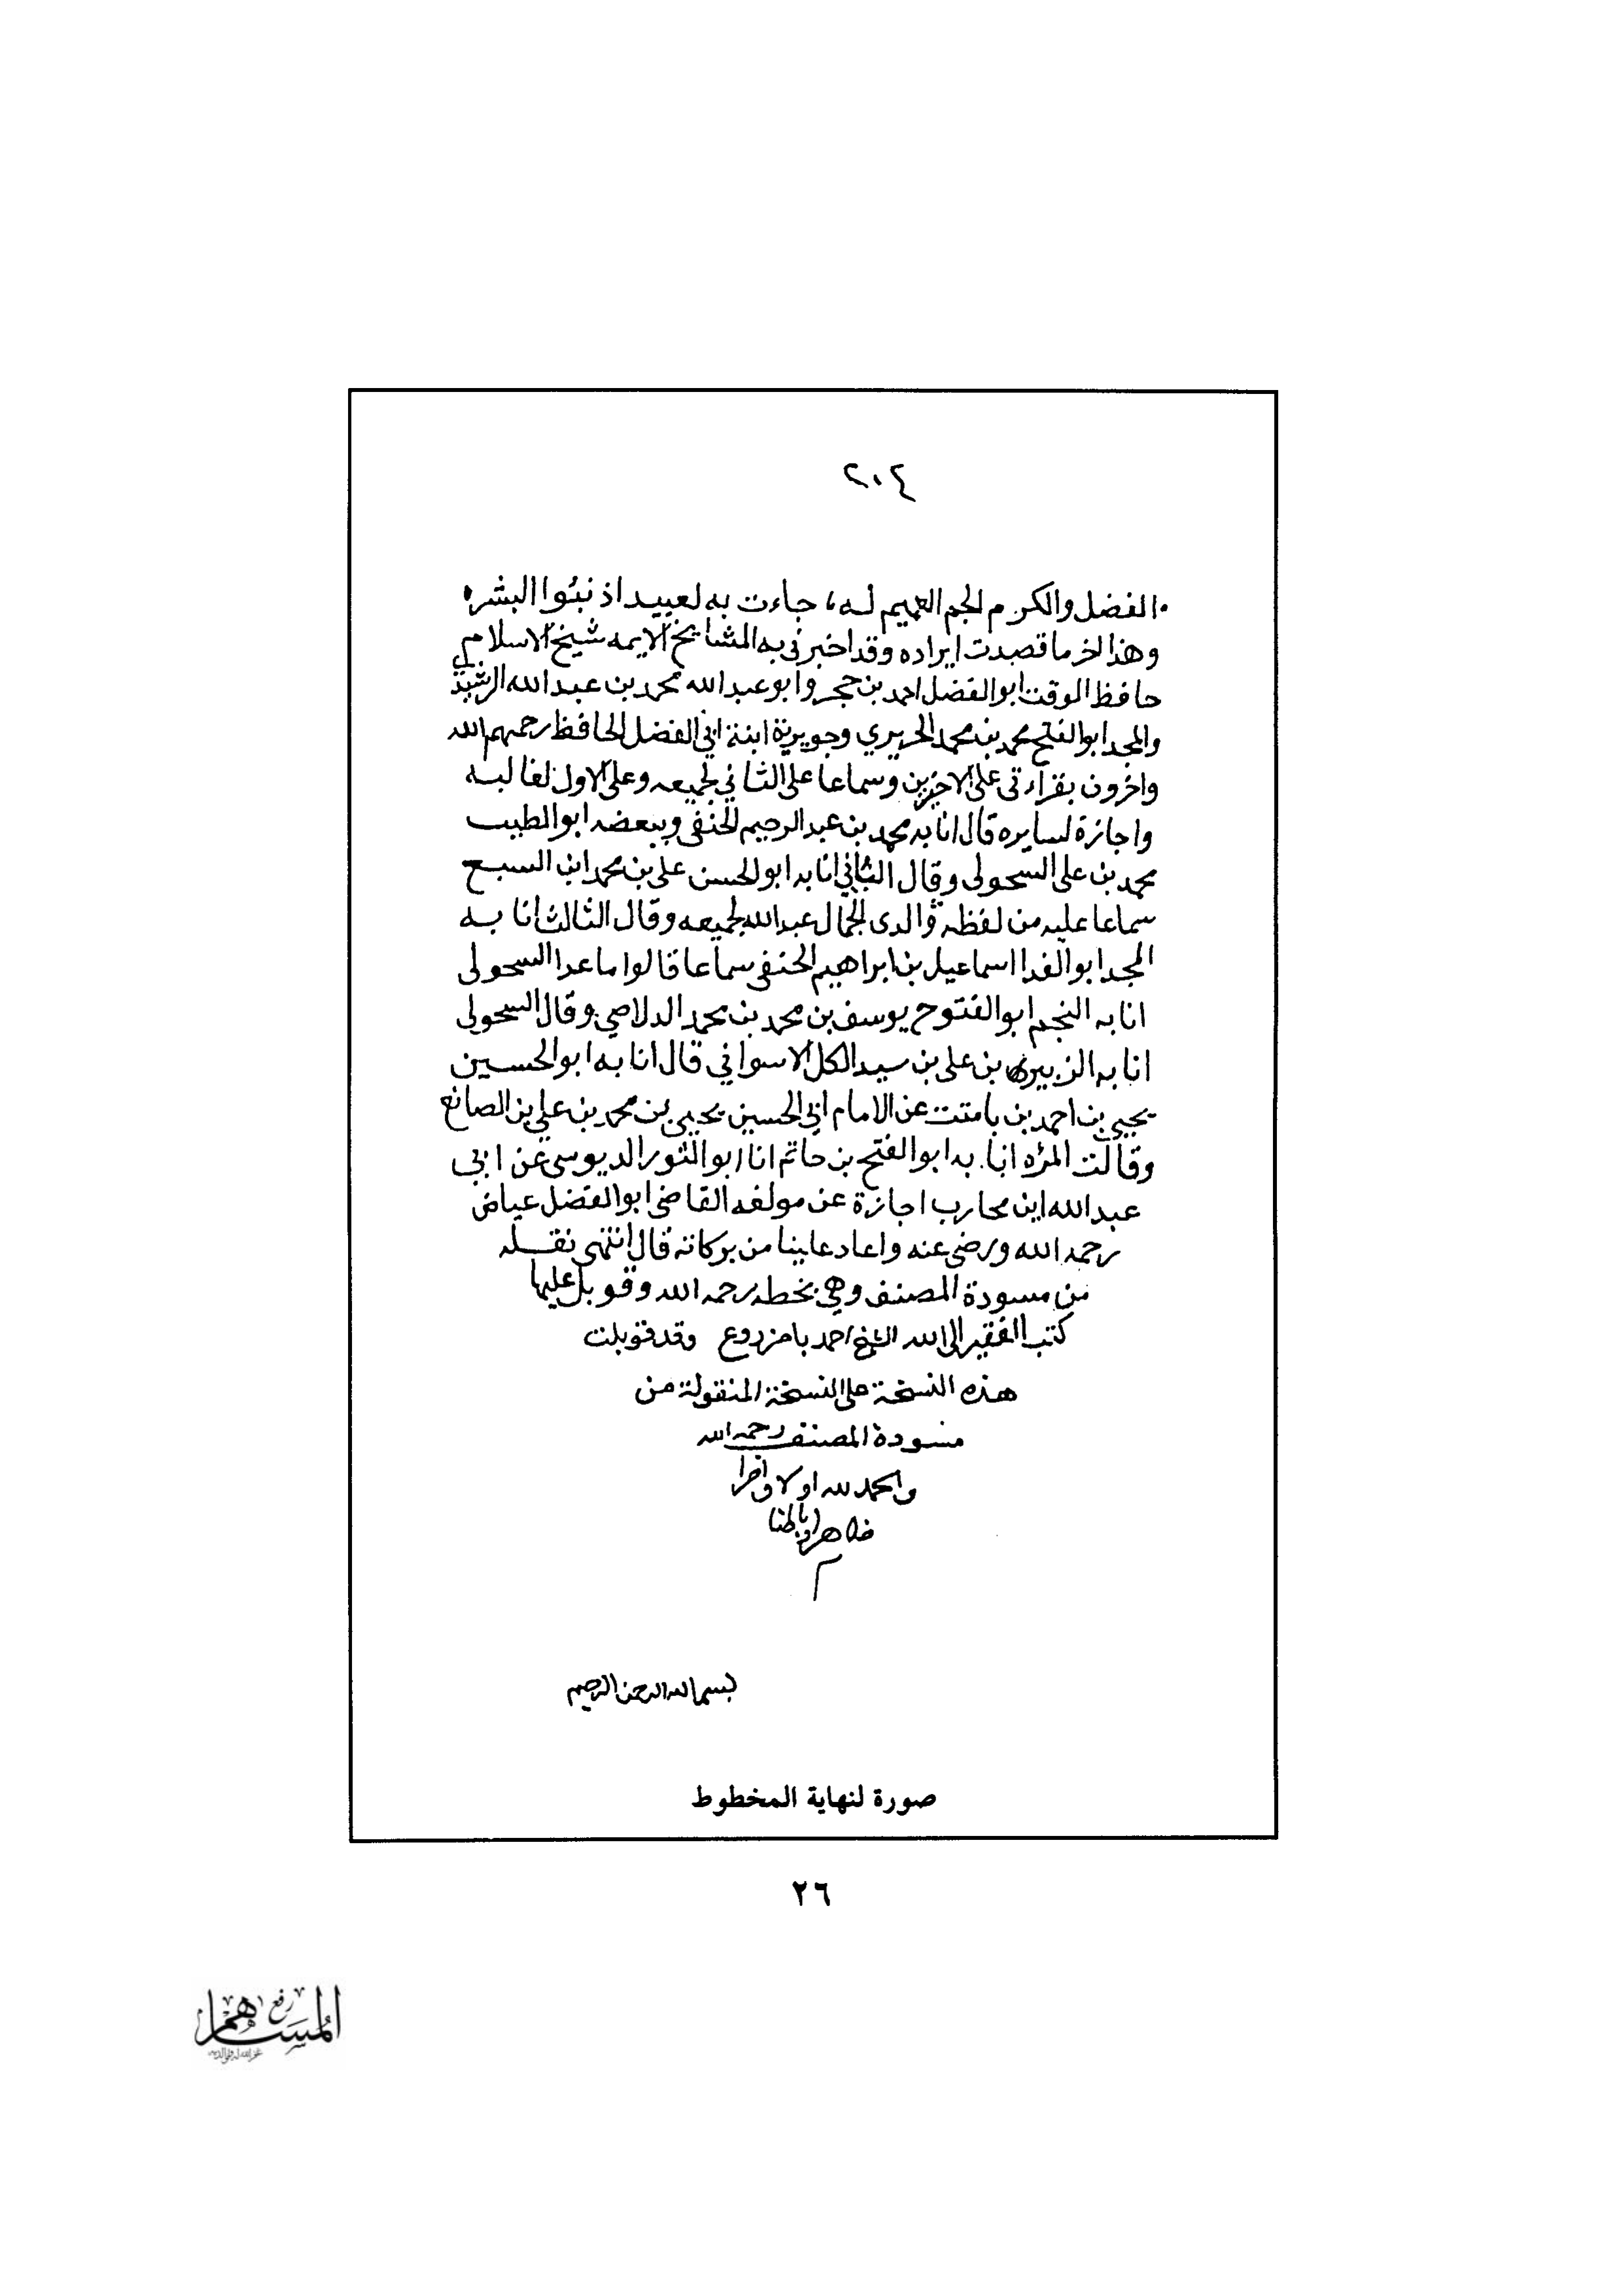 ٢٠٤
الفضل والكرم الجم العميم له، جاءت به لعبيد اذ نبئوا البشر
وهذا اخر ما قصدت ايراده وقد اخبرني به المشايخ الايمه شيخ الاسلام
حافظ الوقت ابو الفضل احمد بن حجر وابو عبد الله محمد بن عبد الله الرشيدي
والمجد ابو الفتح محمد بن محمد الحريري وجويرية ابنة ابي الفضل الحافظ رحمهم الله
واخرون بقراءتي على الاخيرين وسماعا على الثاني لجميعه وعلى الاول لغالبه
واجازة لسايره قال انا به محمد بن عبد الرحيم الحنفي وببعضه ابو الطيب
محمد بن علي السحولي وقال الثاني انا به ابو الحسن علي بن محمد ابن السبع
سماعا عليه من لفظه ووالدي الجمال عبد الله لجميعه وقال الثالث انا به
المجد ابو الفدا اسماعيل بن ابراهيم الحنفي سماعا قالوا ما عدا السحولي
انا به النجم ابو الفتوح يوسف بن محمد بن محمد الدلاصي وقال السحولي
انا به الزبير بن علي بن سيد الكل الاسواني قال انا به ابو الحسين
يحيى بن احمد بن بامتت عن الامام ابي الحسين يحيى بن محمد بن علي بن الصانع
وقالت المرٔه انا به ابو الفتح بن حاتم انا ابو النور الدبوسي عن ابي
عبد الله ابن محارب اجازة عن مولفه القاضي ابو الفضل عياض
رحمه الله ورضي عنه واعاد علينا من بركاته قال انتهى نقله
من مسودة المصنف وهي بخطه رحمه الله وقوبل عليها
كتب الفقير الى الله الشيخ احمد بامزروع وقد قوبلت
هذه النسخة على النسخة المنقولة من
مسودة المصنف رحمه الله
والحمد لله اولا واخرا
ظاهرا وباطنا
بسم الله الرحمن الرحيم
صورة لنهاية المخطوط
٢٦
رفع
المساهم
غفر الله له ولوالديه